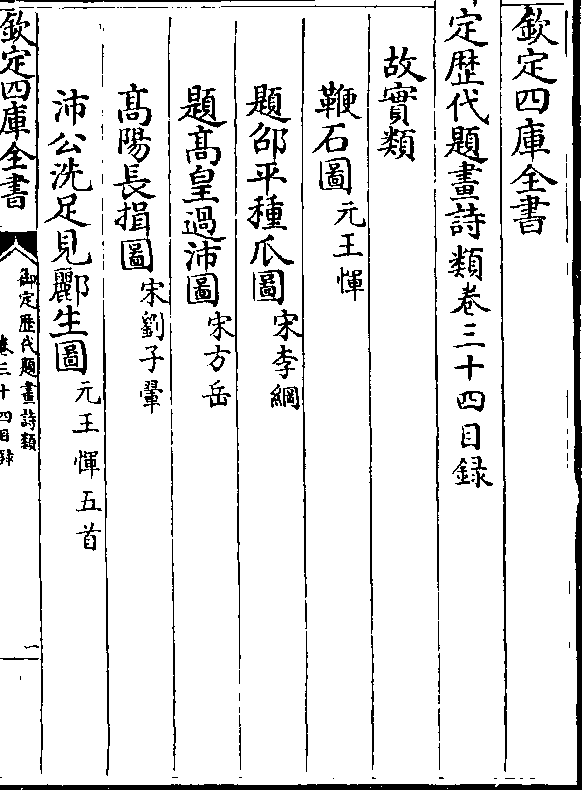 欽定四庫全書
定歴代題畫詩類卷三十四目録
故實類
鞭石圖 元王惲
題邵平種瓜圖 宋李綱
題髙皇過沛圖 宋方岳
髙陽長揖圖 宋劉子翬
沛公洗足見酈生圖 元王惲五首
欽定四庫全書
御定歴代題畫詩類
卷三十四目録
一